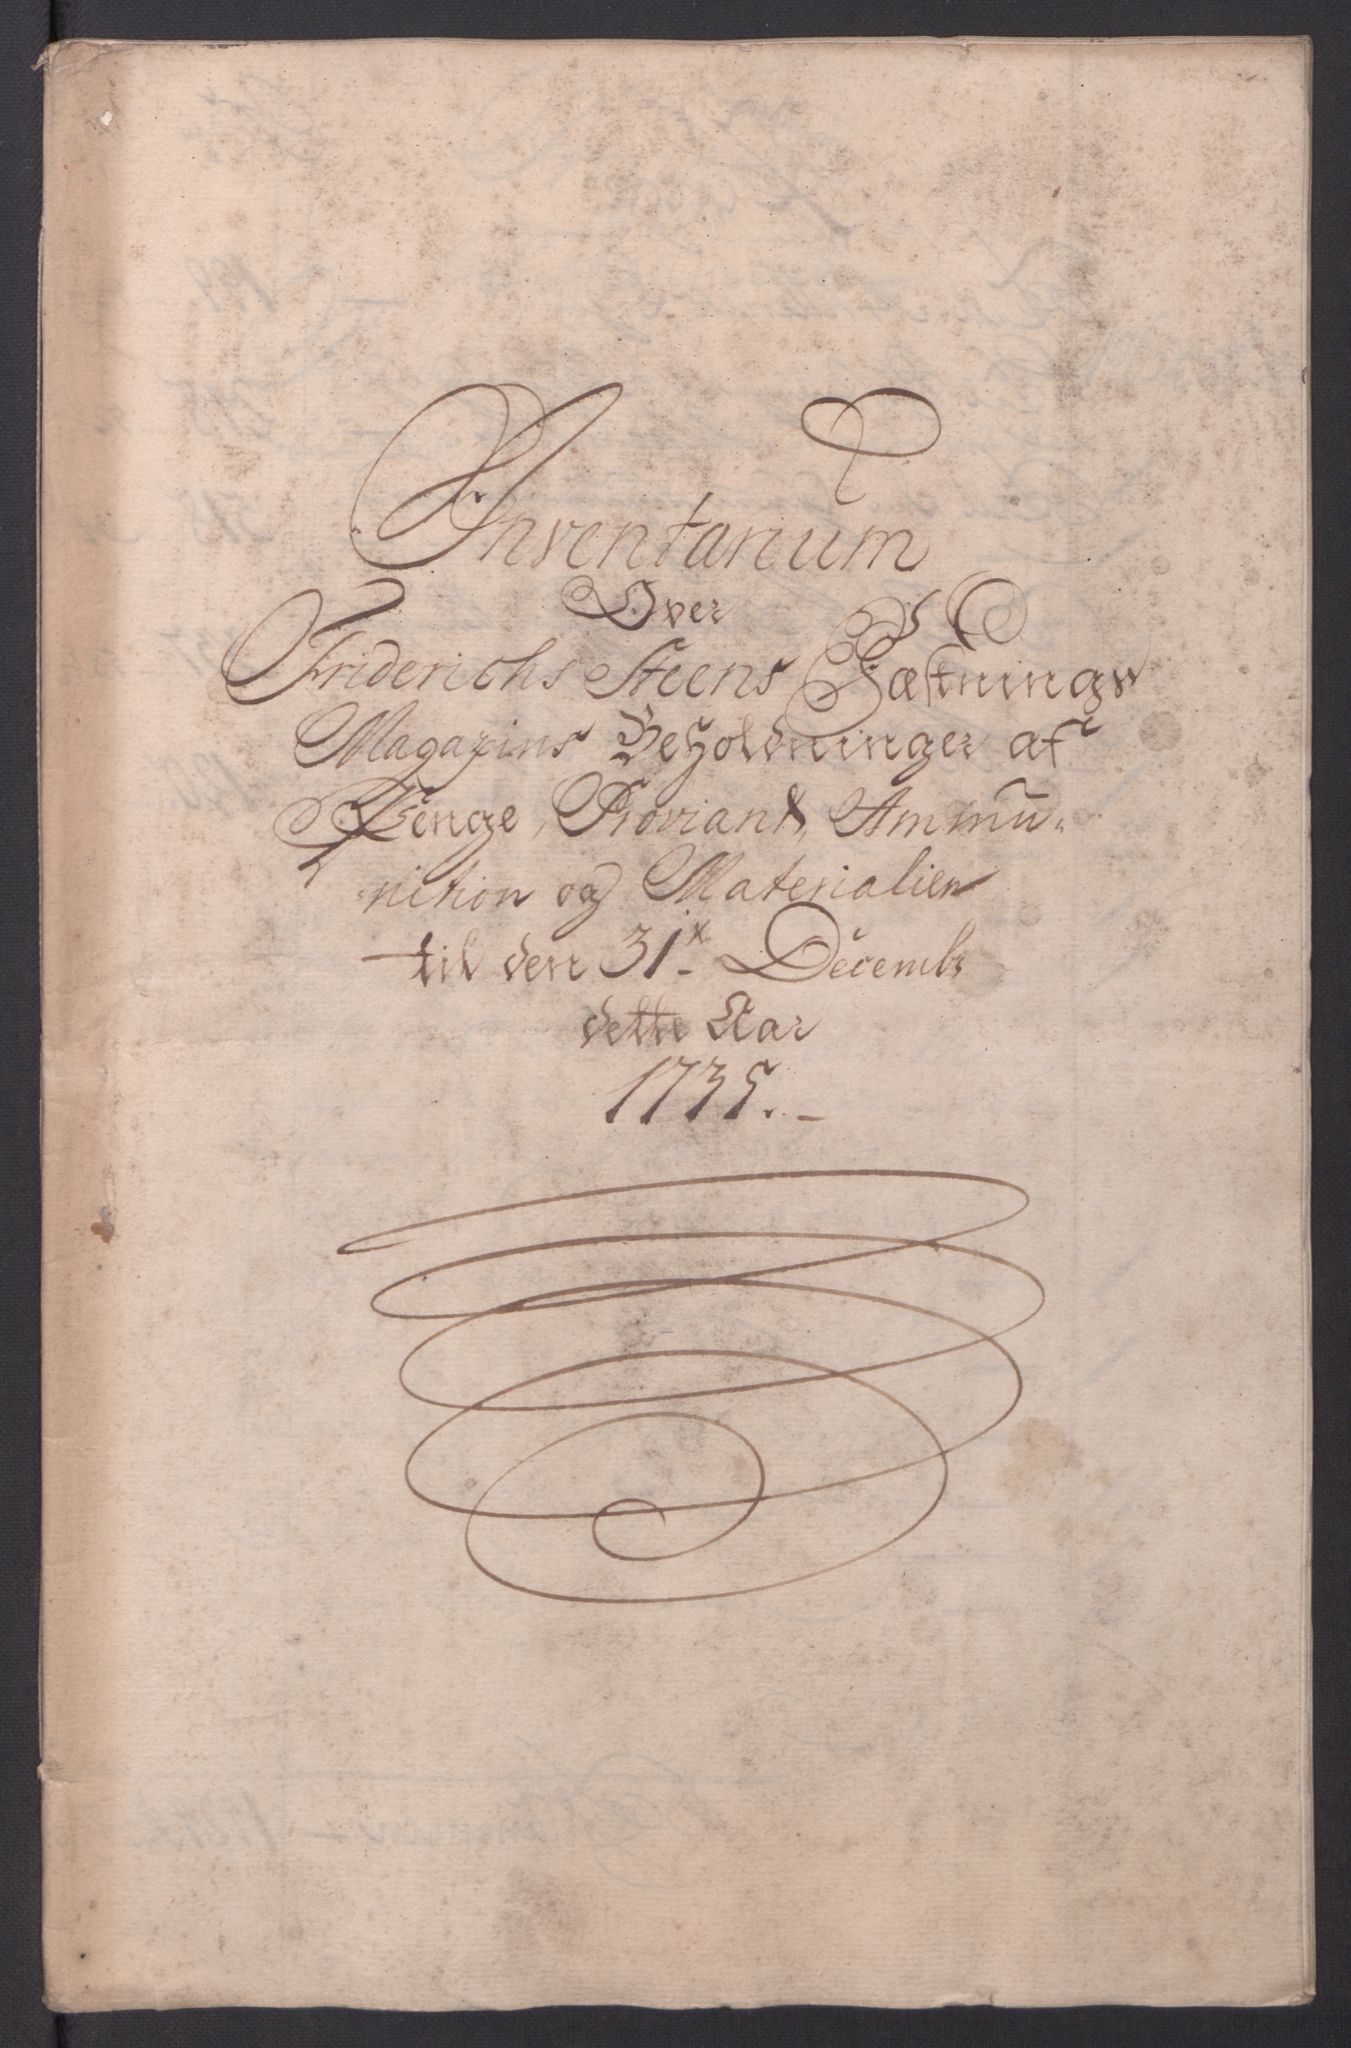 Inventarium
Over
Friderichs Steens Fæstnings
Magazins Beholdninger af
Penge, Proviant, Ammu-
nition og Materialien
til den 31. Decembr
dette Aar
1735.